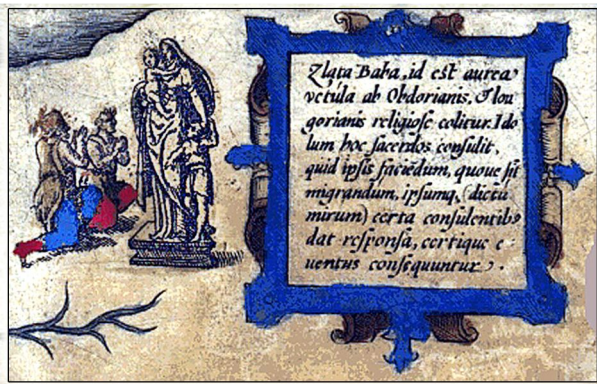 Zlata Baba, id est aurea
vetula ab Obdorianis, & Iou
gorianis religiose colitur. Ido
lum hoc sacerdos consulit,
quid ipsis faciẽdum, quoue sit
migrandum, ipsumq́; (dictu
mirum) certa consulentib9
dat responsa, certique e-
uentus consequuntur.